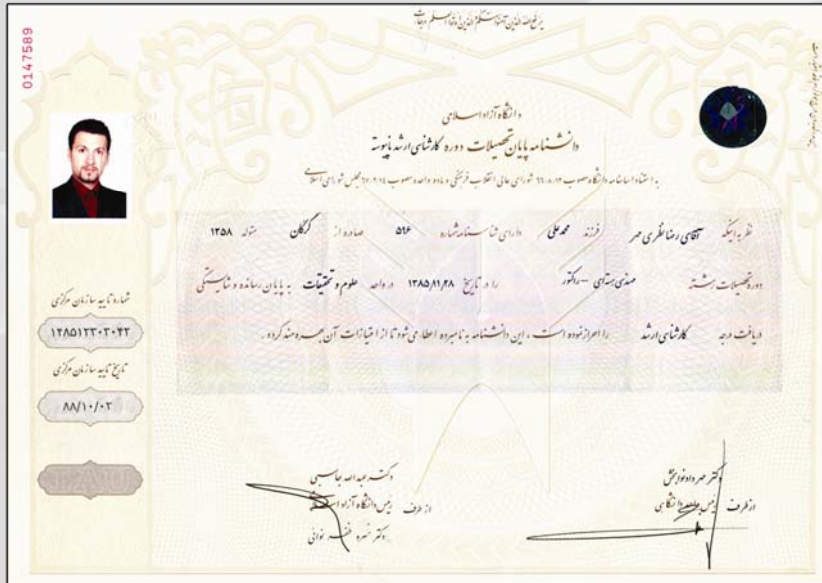 0147589
دانشگاه آزاد اسلامی
دانشنامه پایان تحصیلات دوره کارشناسی ارشد ناپیوسته
به استناد اساسنامه دانشگاه مصوب شورای عالی انقلاب فرهنگی و ماده واحده مصوب مجلس شورای اسلامی
نظر به اینکه آقای رضا نظری مهر فرزند محمدعلی دارای شناسنامه شماره ۵۹۶ صادره از گرگان متولد ۱۳۵۸
دوره تحصیلات رشته مهندسی هسته‌ای - راکتور را در تاریخ ۱۳۸۵/۱۱/۲۸ در واحد علوم و تحقیقات به پایان رسانده و شایستگی
دریافت درجه کارشناسی ارشد را احراز نموده است ، این دانشنامه به نامبرده اعطا می شود تا از امتیازات آن بهره مند گردد .
شماره تایید سازمان مرکزی
۱۲۸۵۱۲۳۰۳۰۴۲
تاریخ تایید سازمان مرکزی
۸۸/۱۰/۰۲
دکتر مهرداد نوابخش
از طرف رئیس واحد دانشگاهی
دکتر عبدالله جاسبی
از طرف رئیس دانشگاه آزاد اسلامی
دکتر